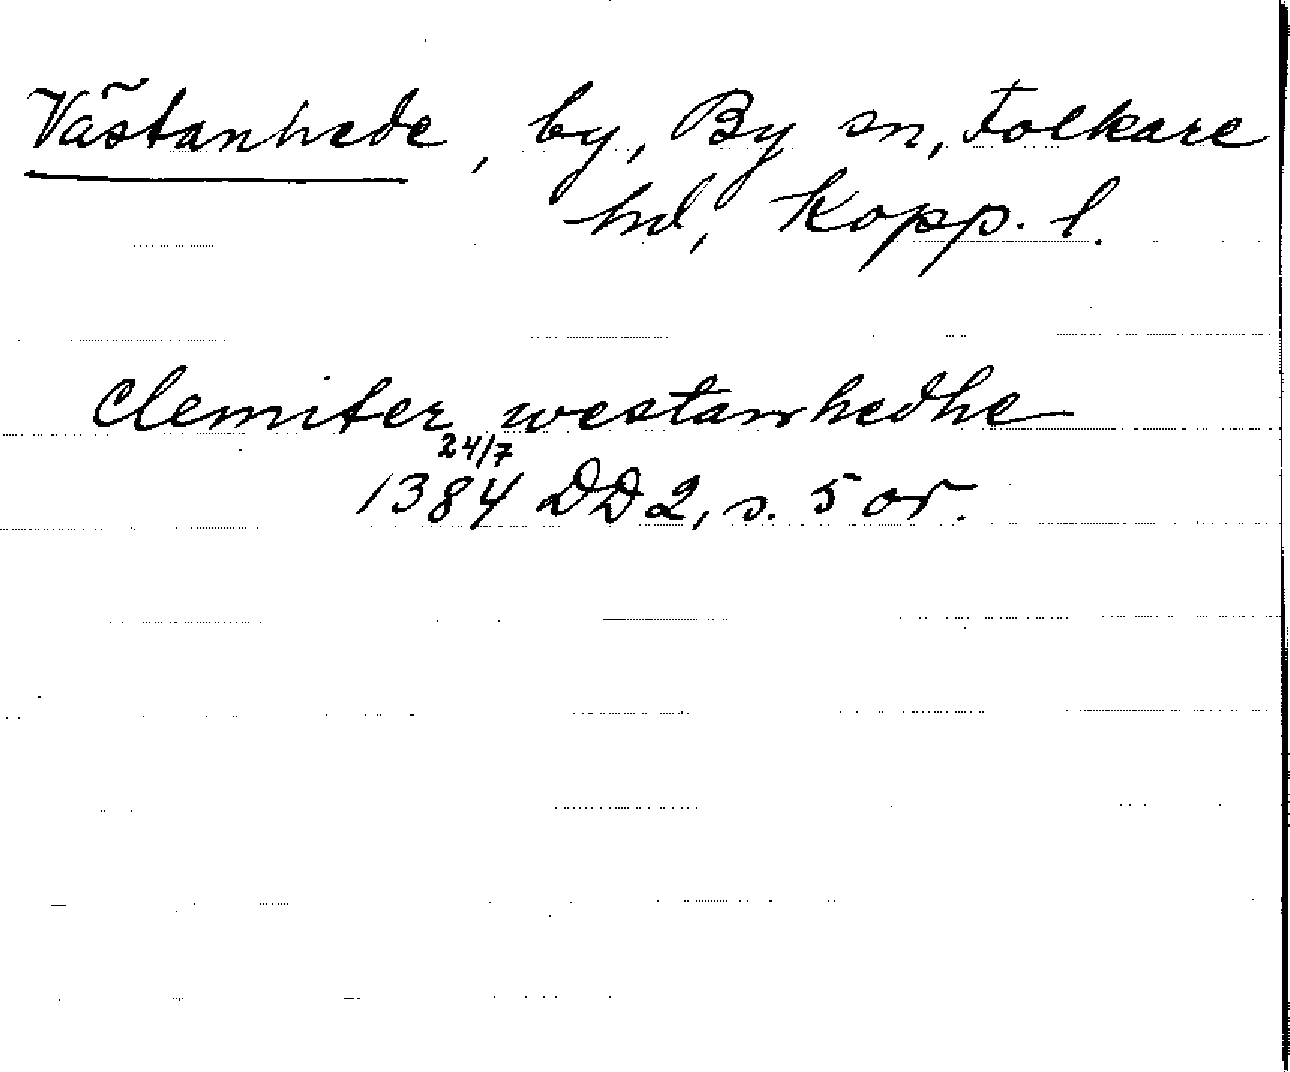 Västanhede, by, By sn, Folkare
hd, Kopp. l.
Clemiter westanhedhe
24/7
1384 DD 2, s. 5 or.